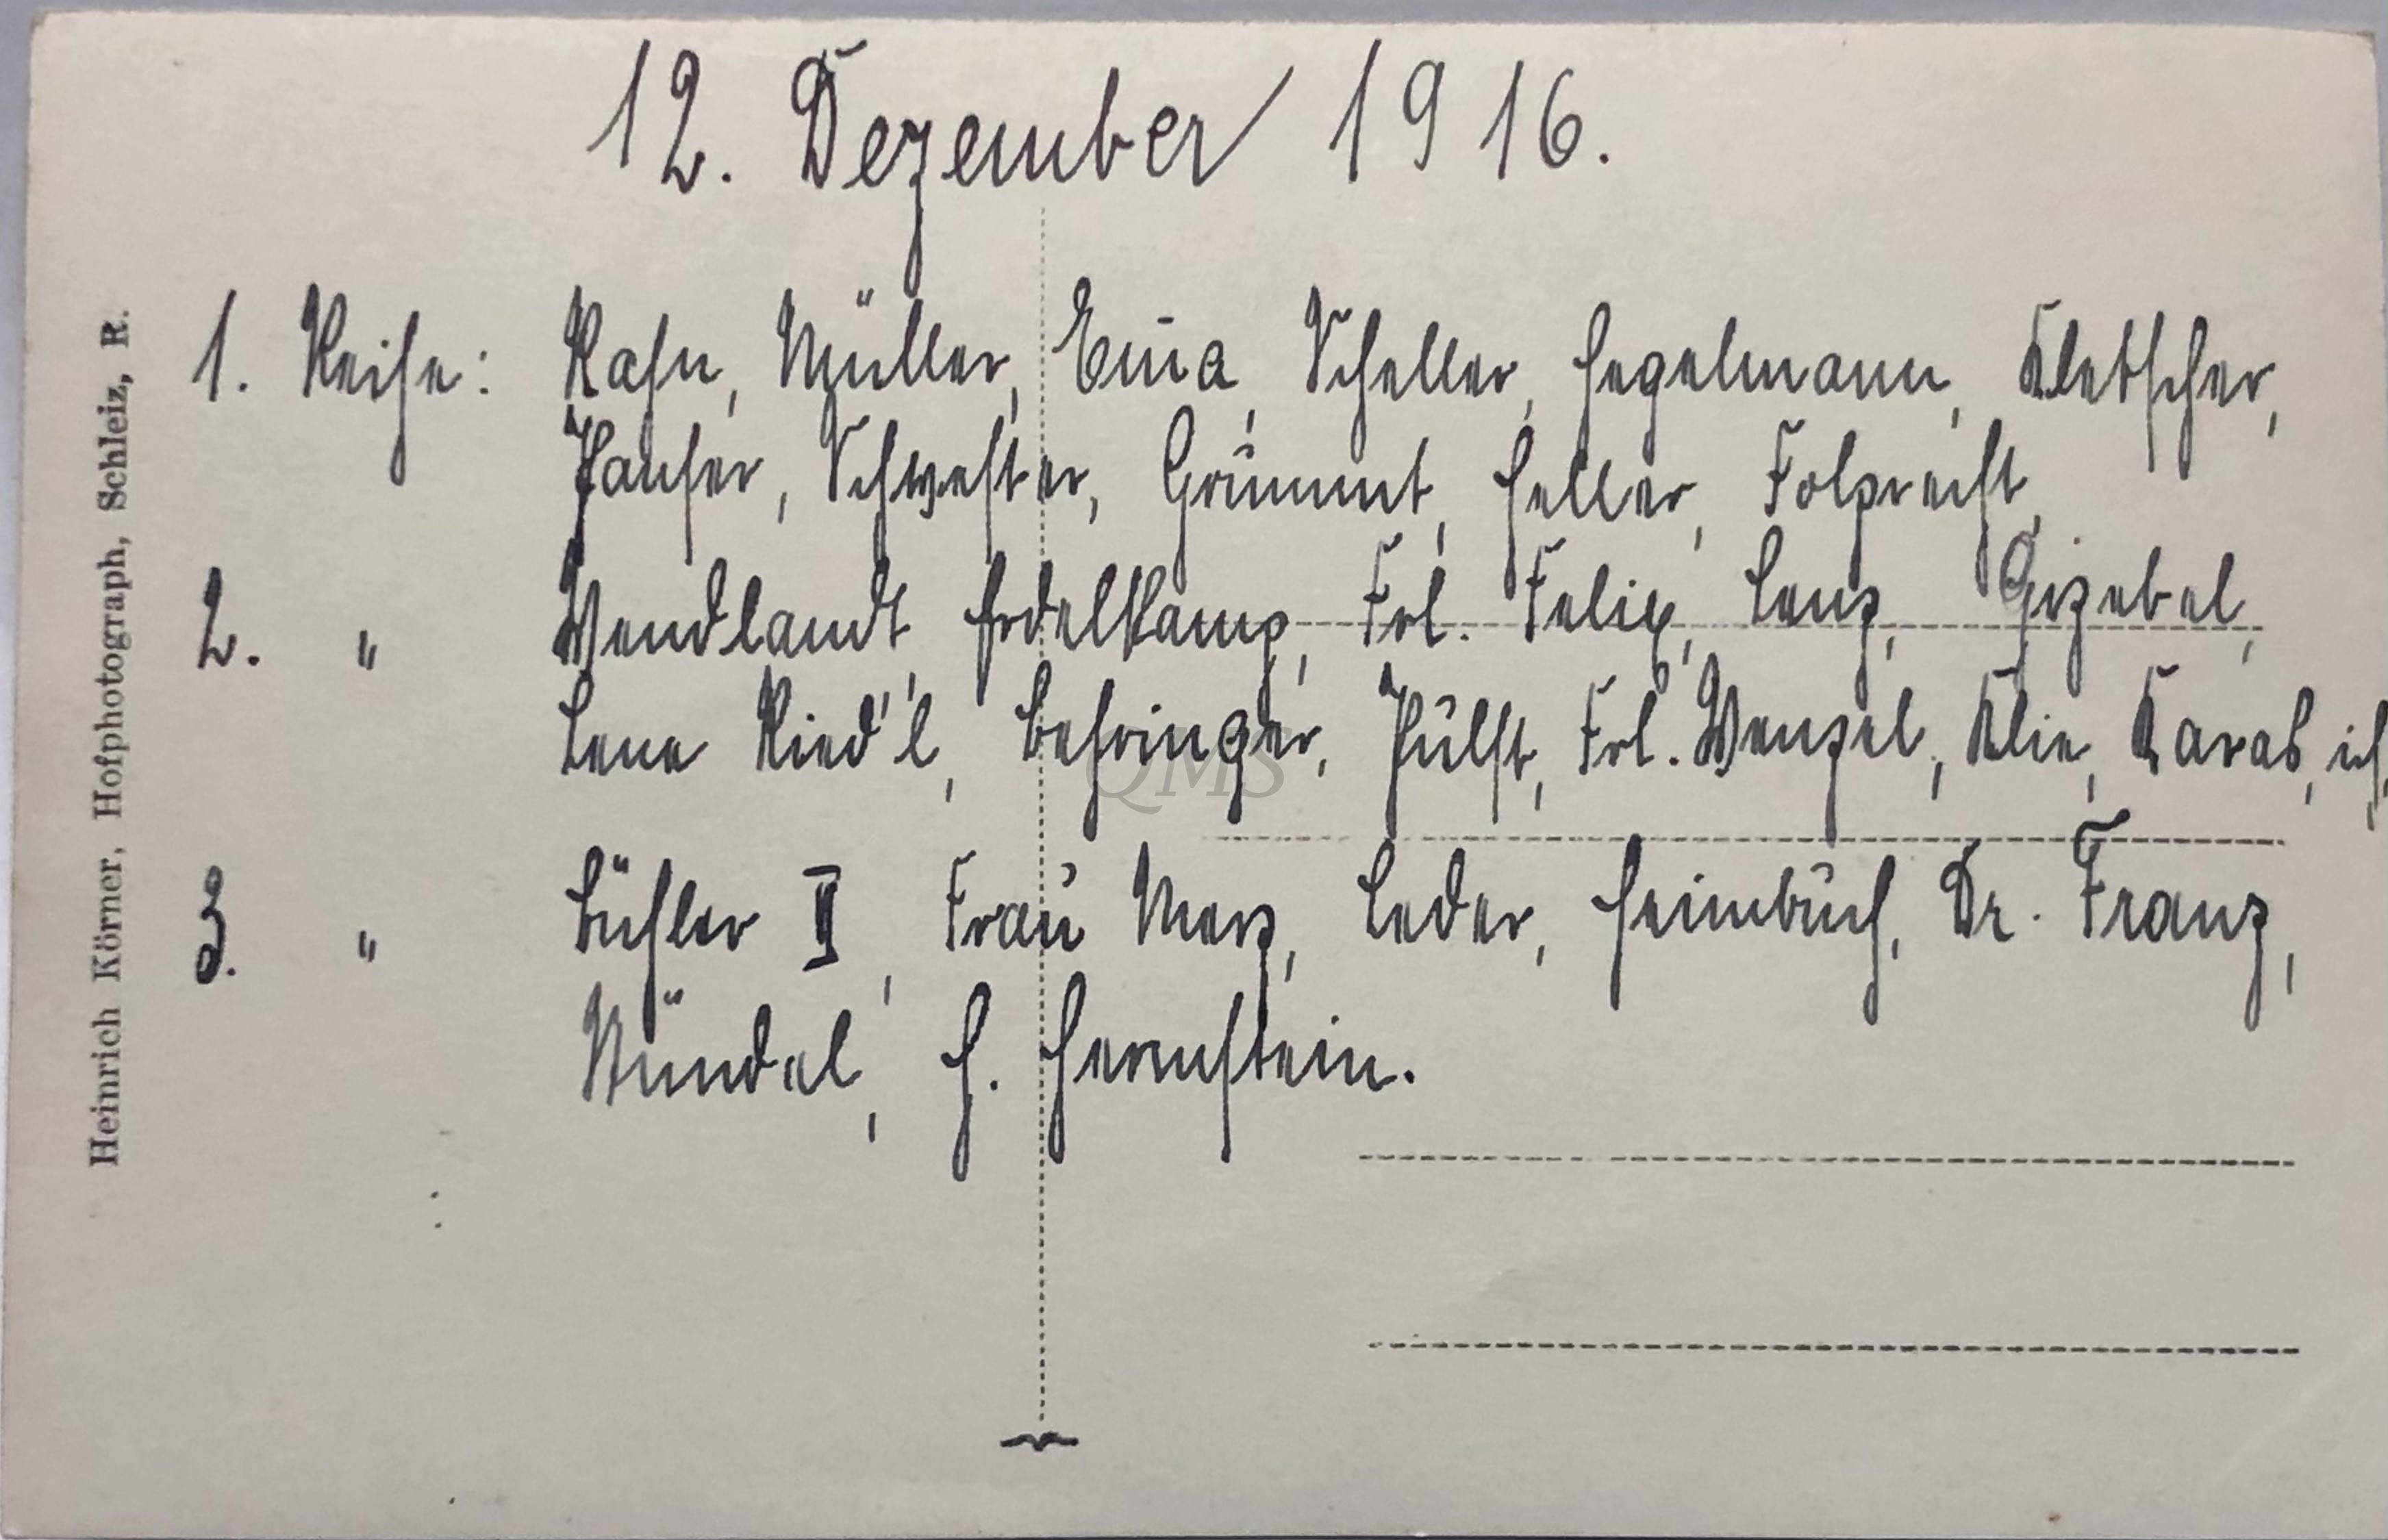 12. Dezember 1916.
1. Reihe: Rahn, Müller, Erna, Scheller, Hegelmann, Kletscher,
Hauser, Schwester, Grummt, Heller, Folprecht,
2. " Wendlandt, Erdelkamp, Frl. Felix, Lenz, Gizebel,
Lene Ried'l, Behringer, Hülst, Frl. Wenzel, Klie, Karab, ich,
3. " Bühler II, Frau Merz, Leder, Heimbuch, Dr. Franz,
Mündel, H. Hernstein.
Heinrich Körner, Hofphotograph, Schleiz, R.
QMS